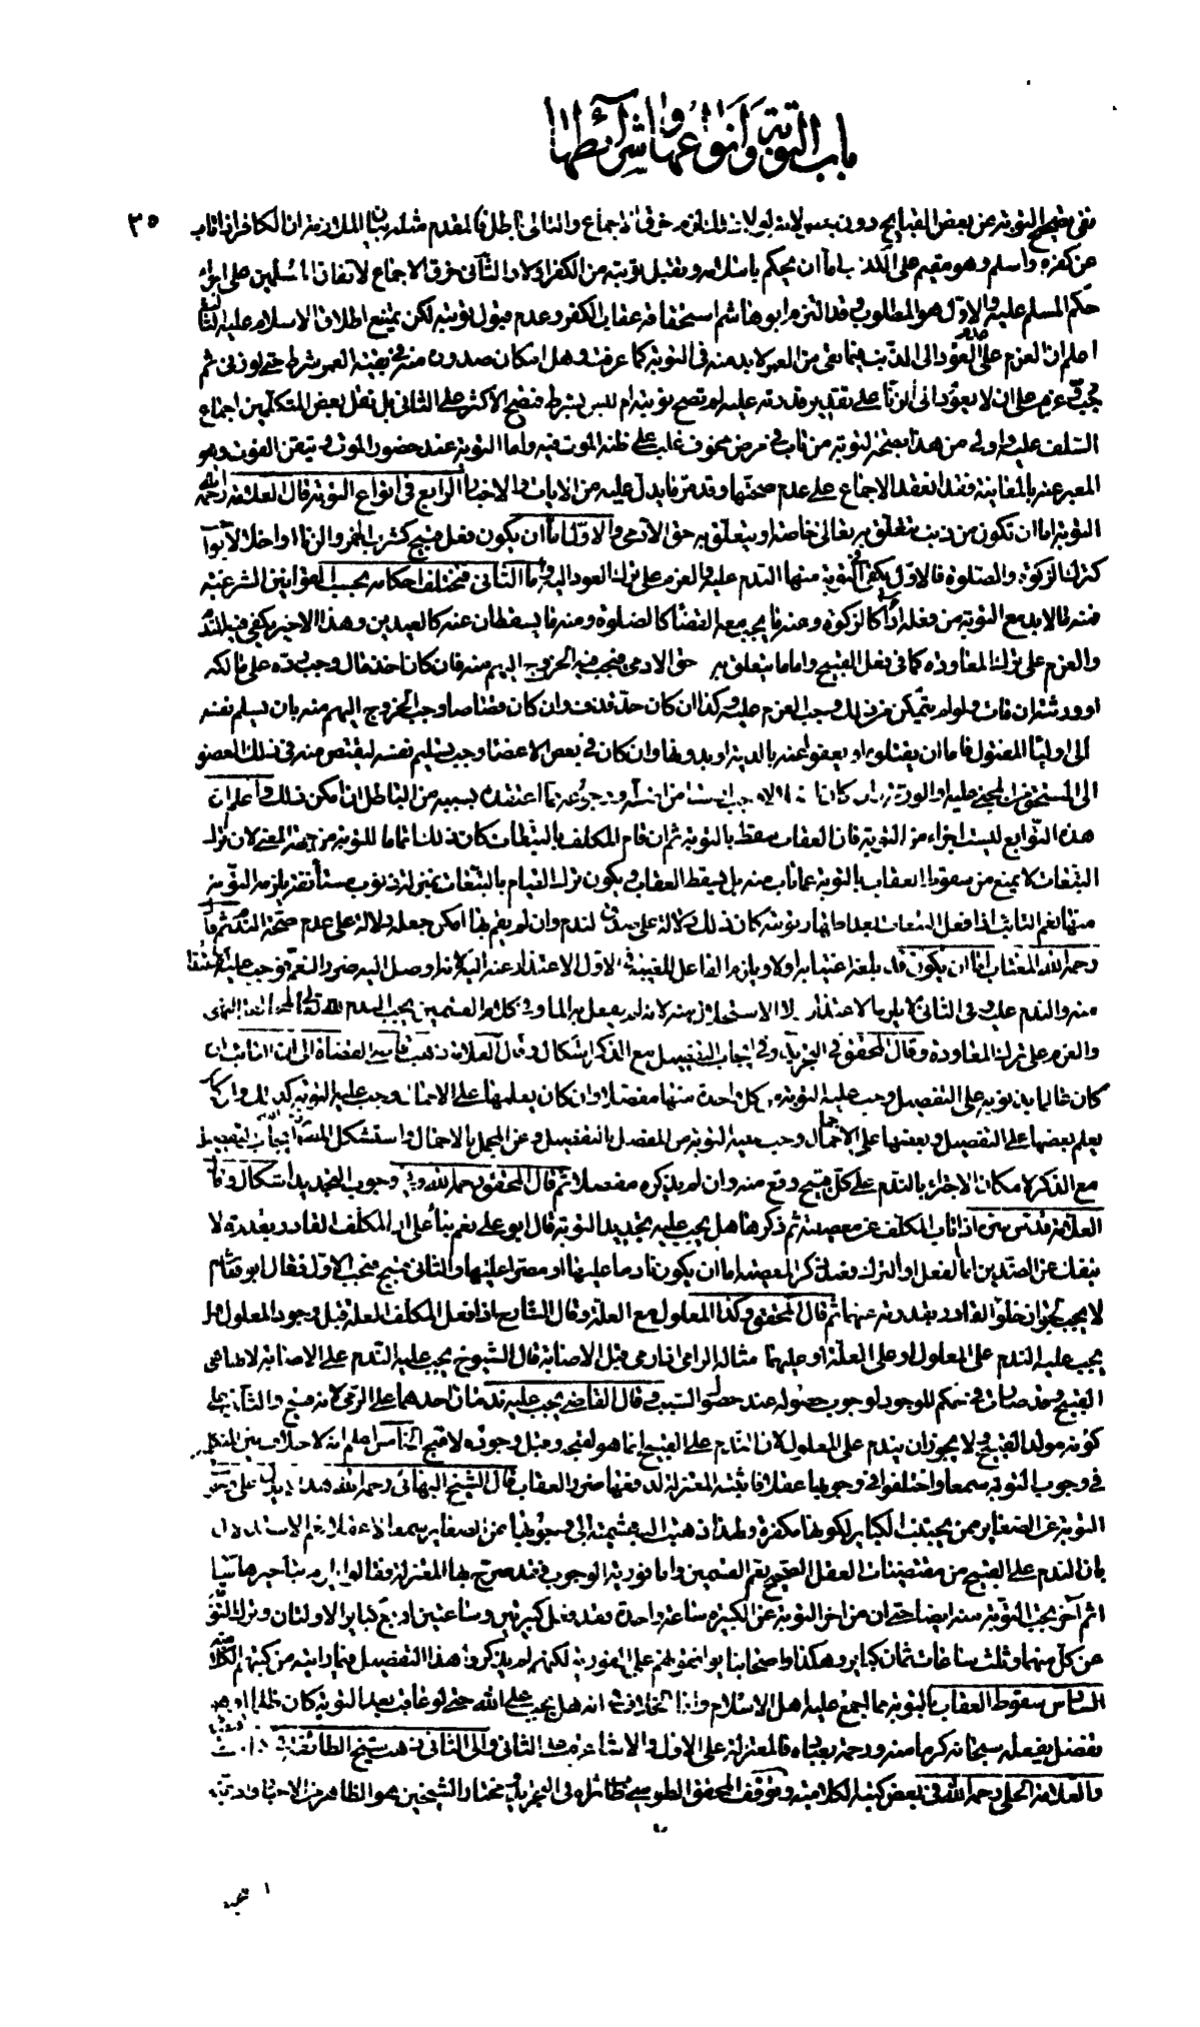 باب التوبة وأنواعها وشرائطها
٣٥
نفى تصحيح التوبة عن بعض القبايح دون بعض لانه لولا ذلك لزم خرق الاجماع والتالى باطل فالمقدم مثله بيان الملازمة ان الكافر اذا تاب
عن كفره واسلم وهو مقيم على الكذب فاما ان يحكم باسلامه وتقبل توبته من الكفر اولا والثانى خرق الاجماع لاتفاق المسلمين على اجراء
حكم المسلم عليه والاول هو المطلوب وقد التزم ابو هاشم استحقاقه عقاب الكفر وعدم قبول توبته لكن يمتنع اطلاق الاسلام عليه الثالث
اعلم ان العزم على عدم العود الى الذنب فيما بقى من العمر لابد منه فى التوبة كما عرفت وهل امكان صدوره منه فى بقية العمر شرط حتى لو زنى ثم
جب وعزم على ان لا يعود الى الزنا على تقدير قدرته عليه لم تصح توبته ام ليس بشرط فتصح الاكثر على الثانى بل نقل بعض المتكلمين اجماع
السلف عليه واولى من هذا بصحة التوبة من تاب فى مرض مخوف غلب على ظنه الموت فيه واما التوبة عند حضور الموت وتيقن الفوت وهو
المعبر عنه بالمعاينة فقد انعقد الاجماع على عدم صحتها وقد مر ما يدل عليه من الايات والاخبار الرابع فى انواع التوبة قال العلامة رحمه الله
التوبة اما ان تكون من ذنب يتعلق به تعالى خاصة او يتعلق به حق الآدمى والاول اما ان يكون فعل قبيح كشرب الخمر والزنا او اخلالا بواجب
كترك الزكوة والصلوة فالاول يكفى فى التوبة منه الندم عليه والعزم على ترك العود اليه واما الثانى فتختلف احكامه بحسب القوانين الشرعية
فمنه ما لابد مع التوبة من فعله اداء كالزكوة ومنه ما يجب معه القضاء كالصلوة ومنه ما يسقطان عنه كالعيدين وهذا الاخير يكفى فيه الندم
والعزم على ترك المعاودة كما فى فعل القبيح واما ما يتعلق به حق الادمى فيجب فيه الخروج اليهم منه فان كان اخذ مال وجب رده على مالكه
او ورثته ان مات ولو لم يتمكن من ذلك وجب العزم عليه وكذا ان كان حد قذف وان كان قصاصا وجب الخروج اليهم منه بان يسلم نفسه
الى اولياء المقتول فاما ان يقتلوه او يعفوا عنه بالدية او بدونها وان كان فى بعض الاعضاء وجب تسليم نفسه ليقتص منه فى ذلك العضو
الى المستحق من المجنى عليه او الورثة وان كان اضلالا وجب ارشاد من اضله ورجوعه مما اعتقده بسببه من الباطل ان امكن ذلك واعلم ان
هذه التوابع ليست اجزاء من التوبة فان العقاب سقط بالتوبة ثم ان قام المكلف بالتبعات كان ذلك اتماما للتوبة من جهة المعنى لان ترك
التبعات لا يمنع من سقوط العقاب بالتوبة عما تاب منه بل يسقط العقاب ويكون ترك القيام بالتبعات بمنزلة ذنوب مستأنفة يلزمه التوبة
منها نعم التائب اذا فعل التبعات بعد اظهار توبته كان ذلك دلالة على صدق الندم وان لم يقم بها امكن جعله دلالة على عدم صحة الندم ثم قال
رحمه الله المغتاب اما ان يكون قد بلغه اغتيابه اولا ويلزم الفاعل للغيبة فى الاول الاعتذار عنه اليه لانه اوصل اليه ضرر الغم فوجب عليه
منه والندم عليه وفى الثانى لا يلزمه الاعتذار ولا الاستحلال منه لانه لم يفعل به الما وفى كلا القسمين يجب الندم لله تعالى لمخالفة النهى
والعزم على ترك المعاودة وقال المحقق فى التجريد وفى ايجاب التفصيل مع الذكر اشكال وقال العلامة ذهب قاضى القضاة الى ان التائب ان
كان عالما بذنوبه على التفصيل وجب عليه التوبة من كل واحدة منها مفصلا وان كان يعلمها على الاجمال وجب عليه التوبة كذلك وان كان
يعلم بعضها على التفصيل وبعضها على الاجمال وجب عليه التوبة من المفصل بالتفصيل وعن المجمل بالاجمال واستشكل المصنف ايجاب التفصيل
مع الذكر لامكان الاجزاء بالندم على كل قبيح وقع منه وان لم يذكره مفصلا ثم قال المحقق رحمه الله وفى وجوب التجديد اشكال وقال
العلامة قدس سره اذا تاب المكلف عن معصيته ثم ذكرها هل يجب عليه تجديد التوبة قال ابو على نعم بناء على ان المكلف القادر بقدرة لا
ينفك عن الضدين اما الفعل او الترك فعند ذكر المعصية اما ان يكون نادما عليها او مصرا عليها والثانى قبيح فيجب الاول فقال ابو هاشم
لا يجب لجواز خلو القادر بقدرته عنهما ثم قال المحقق وكذا المعلول مع العلة وقال الشارح اذا فعل المكلف العلة قبل وجود المعلول هل
يجب عليه الندم على المعلول او على العلة او عليهما مثاله الرامى اذا رمى قبل الاصابة قال الشيوخ يجب عليه الندم على الاصابة لانها هى
القبيح وقد صارت فى حكم الموجود لوجوب حصوله عند حصول السبب وقال القاضى يجب عليه ندمان احدهما على الرمى لانه قبيح والثانى على
كونه مولد القبيح ولا يجوز ان يندم على المعلول لان الندم على القبيح انما هو لقبحه وقبل وجوده لا قبح الخامس اعلم انه لا خلاف بين المتكلمين
فى وجوب التوبة سمعا واختلفوا فى وجوبها عقلا فاثبته المعتزلة لدفعها ضرر العقاب قال الشيخ البهائى رحمه الله هذا لا يدل على وجوب
التوبة عن الصغاير ممن يجتنب الكباير لكونها مكفرة ولهذا ذهبت البهشمية الى وجوبها عن الصغاير سمعا لا عقلا نعم الاستدلال
بان الندم على القبيح من مقتضيات العقل الصحيح يعم القسمين واما فورية الوجوب فقد صرح بها المعتزلة فقالوا يلزم بتأخيرها ساعة
اثم آخر تجب التوبة منه ايضا حتى ان من اخر التوبة عن الكبيرة ساعة واحدة فقد فعل كبيرتين وساعتين اربع كباير الاولتان وترك التوبة
عن كل منهما وثلث ساعات ثمان كباير وهكذا واصحابنا يوافقونهم على الفورية لكنهم لم يذكروا هذا التفصيل فيما رايته من كتبهم الكلامية
السادس سقوط العقاب بالتوبة مما اجمع عليه اهل الاسلام وانما الخلاف فى انه هل يجب على الله حتى لو عاقب بعد التوبة كان ظلما او هو
تفضل يفعله سبحانه كرما منه ورحمة بعباده فالمعتزلة على الاول والاشاعرة على الثانى والى الثانى ذهب شيخ الطائفة
والعلامة الحلى رحمه الله فى بعض كتبه الكلامية وتوقف المحقق الطوسى طاب ثراه فى التجريد ومختار الشيخين هو الظاهر من الاخبار